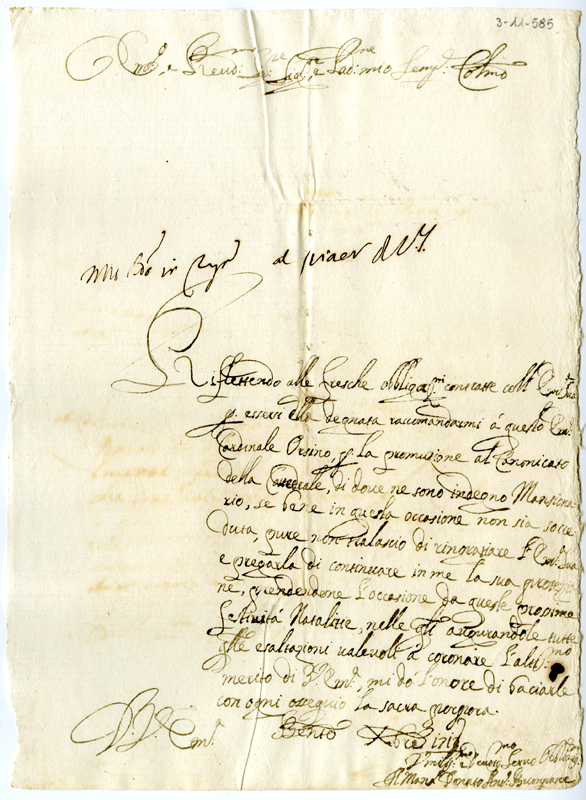 3-11-585
Em.º e Reud.mo Sig.re e Pad.ne mio Semp.e Col.mo
al
Riflettendo alle fresche obligaz.ni contratte coll' Em.za Sua
p. essersi ella degnata raccomandarmi á questo Em.
Cardinale Orsino, p. la promozione al Canonicato
della Cattedrale, di dove ne sono indegno Mansiona
rio, se bene in questa occasione non sia socce
duta, pure non tralascio di ringraziare l'Em. Sua
e pregarla di continuare in me la sua protezzio
ne, prendendone l'occasione da queste prossime
festiuitá Natalitie, nelle q.li augurandole tutte
q.lle esaltazioni valevoli á coronare l'altiss.mo
merito di V. Em.ª, mi dó l'onore di baciarle
con ogni ossequio la sacra porpora.
Di V. Em.ª Bento
Vmiliss.mo Deuotiss.mo Seruo
Donato